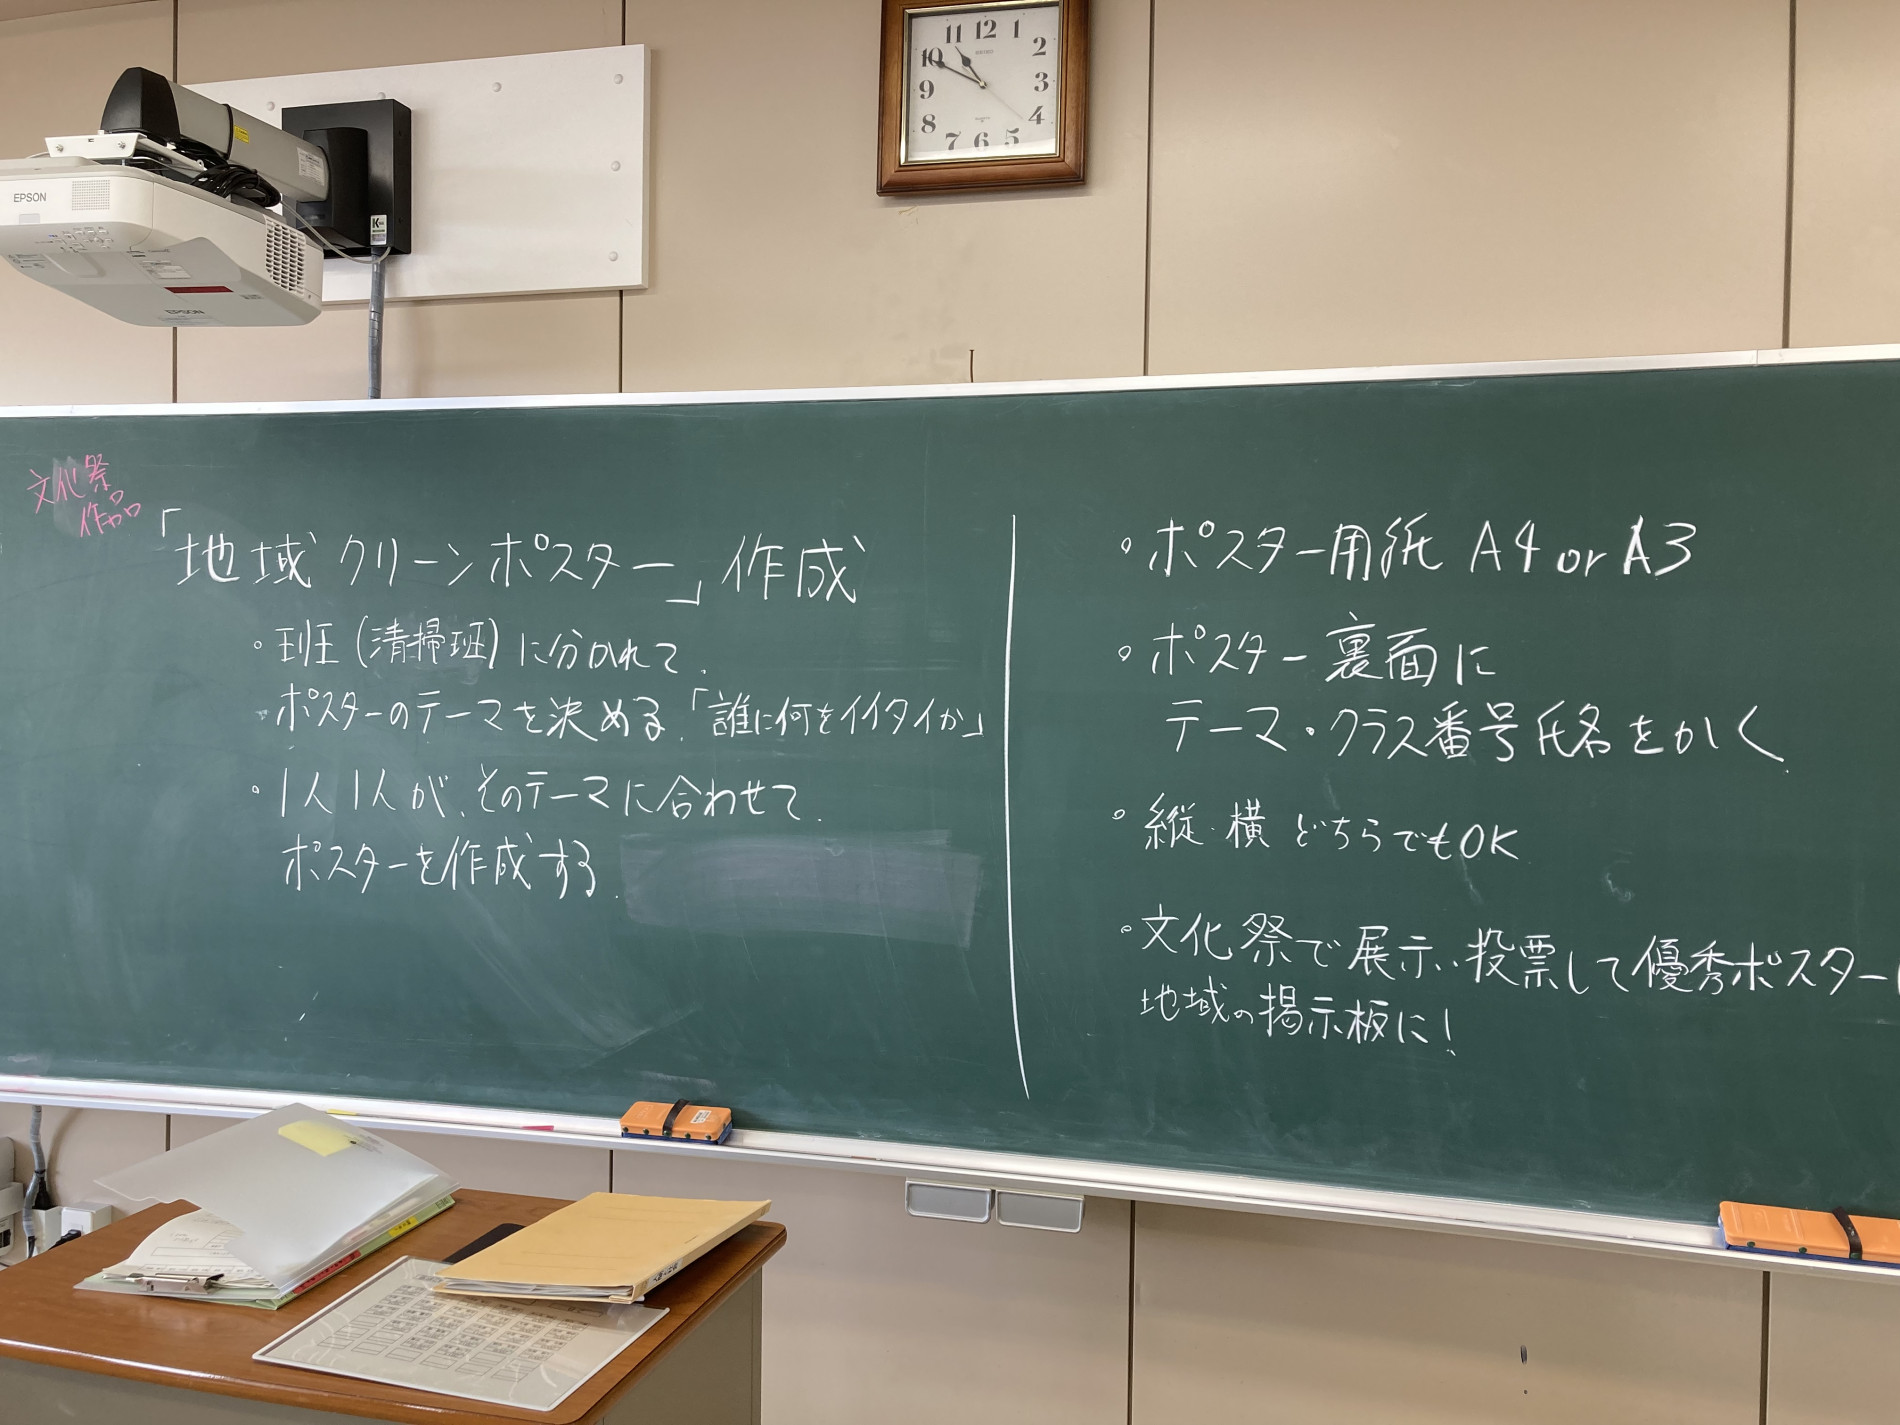 11 12 1
10 2
9 3
8 4
7 6 5
SEIKO
EPSON
EPSON
文化祭
作品
「地域クリーンポスター」作成
・班(清掃班)に分かれて、
ポスターのテーマを決める。「誰に何をイイタイか」
・1人1人が、そのテーマに合わせて、
ポスターを作成する。
・ポスター用紙 A4 or A3
・ポスター裏面に
テーマ・クラス番号氏名をかく。
・縦・横 どちらでもOK
・文化祭で展示・投票して優秀ポスター
地域の掲示板に!